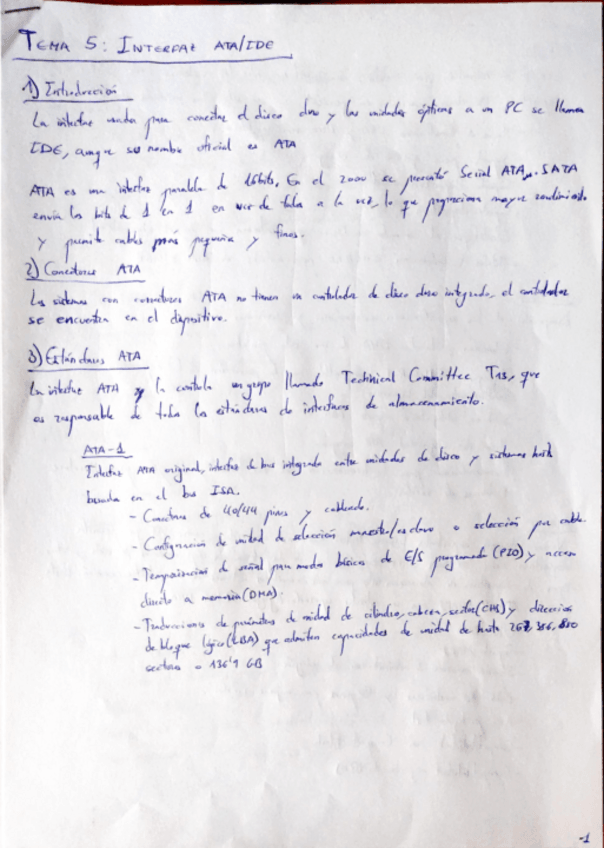 TEMA 5: INTERFAZ ATA/IDE
1) Introducción
La interfaz usada para conectar el disco duro y las unidades ópticas a un PC se llama
IDE, aunque su nombre oficial es ATA
ATA es una interfaz paralela de 16bits, En el 2000 se presentó Serial ATA, SATA
envía los bits de 1 en 1 en vez de todos a la vez, lo que proporciona mayor rendimiento
y permite cables más pequeños y finos.
2) Conectores ATA
Los sistemas con conectores ATA no tienen un controlador de disco duro integrado, el controlador
se encuentra en el dispositivo.
3) Estándares ATA
La interfaz ATA la controla un grupo llamado Technical Committee T13, que
es responsable de todos los estándares de interfaces de almacenamiento.
ATA-1
Interfaz ATA original, interfaz de bus integrada entre unidades de disco y sistemas host
basada en el bus ISA.
- Conectores de 40/44 pines y cableado.
- Configuración de unidad de selección maestro/esclavo o selección por cable.
- Temporización de señal para modos básicos de E/S programada (PIO) y acceso
directo a memoria (DMA).
- Traducciones de parámetros de unidad de cilindro, cabeza, sector (CHS) y dirección
de bloque lógico (LBA) que admiten capacidades de unidad de hasta 267,386,880
sectores o 136'9 GB
-1